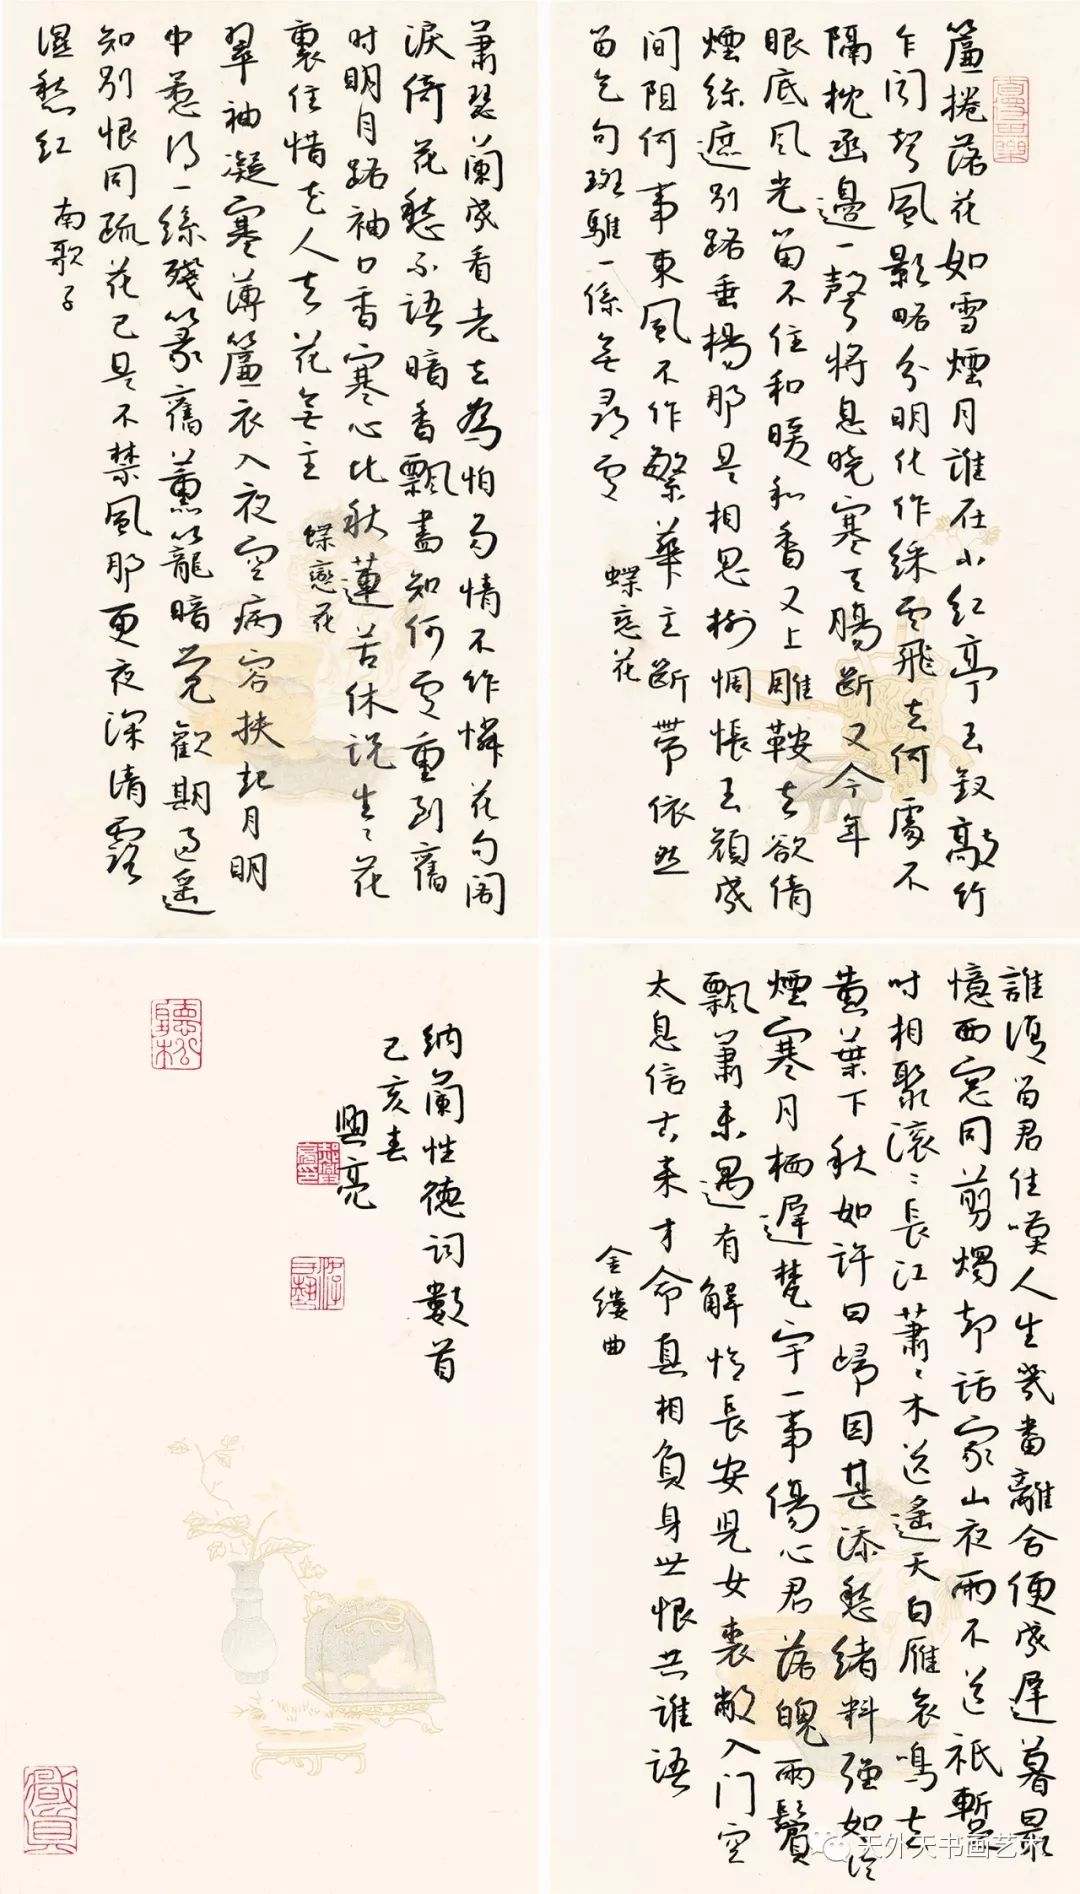 簾捲落花如雪煙月誰在小紅亭玉釵敲竹
乍闻聲風影略分明化作綵雲飛去何處不
隔枕函邊一聲將息曉寒天腸斷又今年
眼底风光留不住和暖和香又上雕鞍去欲倩
煙絲遮别路垂楊那是相思樹惆悵玉顏成
间阻何事東風不作繁華主斷帶依然
留乞句斑騅一係無尋處
蝶戀花
蕭瑟蘭成看老去為怕多情不作憐花句閣
淚倚花愁不語暗香飄盡知何處重到舊
时明月路袖口香寒心比秋蓮苦休説生〻花
裏住惜花人去花無主
蝶戀花
翠袖凝寒薄簾衣入夜空病容扶起月明
中惹得一絲殘篆舊薰籠暗覺歡期過遙
知别恨同疏花已是不禁風那更夜深清露
濕愁紅
南歌子
誰復留君住嘆人生幾番離合便成遲暮最
憶西窓同剪燭却話家山夜雨不道祇暫
时相聚滚〻長江蕭〻木送遙天白雁哀鳴去
黄葉下秋如許曰歸因甚添愁緒料強如冷
煙寒月栖遲梵宇一事傷心君落魄兩鬢
飄蕭未遇有解憶長安兒女裘敝入门空
太息信古来才命真相負身世恨共誰語
金縷曲
納蘭性德詞數首
己亥春
興亮
聽松
藏真
天外天书画艺术